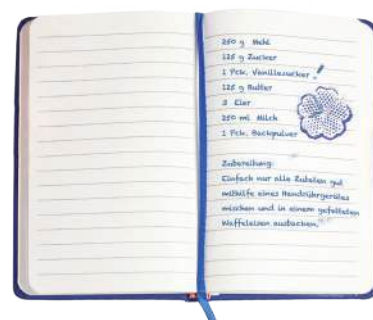 250 g Mehl
125 g Zucker
1 Pck. Vanillezucker !
125 g Butter
3 Eier
250 ml Milch
1 Pck. Backpulver
Zubereitung:
Einfach nur alle Zutaten gut
mithilfe eines Handrührgerätes
mischen und in einem gefetteten
Waffeleisen ausbacken.